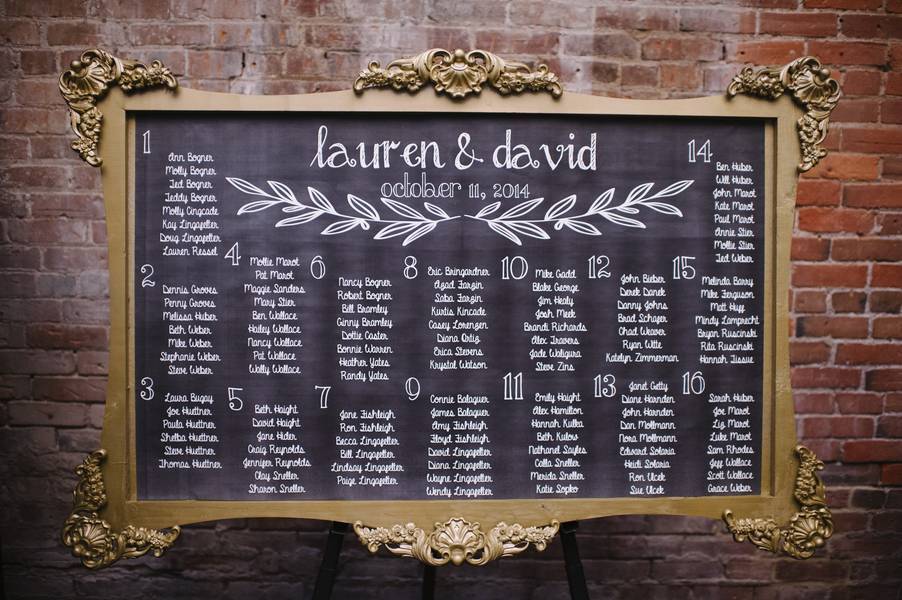 lauren & david
october 11, 2014
1
Ann Bogner
Molly Bogner
Ted Bogner
Teddy Bogner
Molly Cingcade
Kay Lingafelter
Doug Lingafelter
Lauren Ressel
2
Dennis Groves
Penny Groves
Melissa Huber
Beth Weber
Mike Weber
Stephanie Weber
Steve Weber
3
Laura Bugay
Joe Huettner
Paula Huettner
Shelba Huettner
Steve Huettner
Thomas Huettner
4
Mollie Marot
Pat Marot
Maggie Sanders
Mary Stier
Ben Wallace
Hailey Wallace
Nancy Wallace
Pat Wallace
Wally Wallace
5
Beth Haight
David Haight
Jane Hider
Craig Reynolds
Jennifer Reynolds
Clay Sneller
Sharon Sneller
6
Nancy Bogner
Robert Bogner
Bill Bramley
Ginny Bramley
Dottie Caster
Bonnie Warren
Heather Yates
Randy Yates
7
Jane Fishleigh
Ron Fishleigh
Becca Lingafelter
Bill Lingafelter
Lindsay Lingafelter
Paige Lingafelter
8
Eric Bringardner
Azad Farzin
Saba Farzin
Kurtis Kincade
Casey Lorenzen
Diana Ortiz
Erica Stevens
Krystal Watson
9
Connie Balaguer
James Balaguer
Amy Fishleigh
Floyd Fishleigh
David Lingafelter
Diana Lingafelter
Wayne Lingafelter
Wendy Lingafelter
10
Mike Gadd
Blake George
Jim Healy
Josh Meek
Brandi Richards
Alec Travers
Jade Woligura
Steve Zins
11
Emily Haight
Alex Hamilton
Hannah Kulka
Beth Kulow
Nathanel Sayles
Colla Sneller
Merida Sneller
Katie Sopko
12
John Bieber
Derek Danek
Danny Johns
Brad Schafer
Chad Weaver
Ryan Witte
Katelyn Zimmerman
13
Janet Getty
Diane Harnden
John Harnden
Dan Mollmann
Nora Mollmann
Edward Solaria
Heidi Solaria
Ron Ulcek
Sue Ulcek
14
Ben Huber
Will Huber
John Marot
Kate Marot
Paul Marot
Annie Stier
Mollie Stier
Ted Weber
15
Melinda Barry
Mike Ferguson
Matt Huff
Mindy Lamprecht
Bryan Ruscinski
Rita Ruscinski
Hannah Tissue
16
Sarah Huber
Joe Marot
Liz Marot
Luke Marot
Sam Rhodes
Jeff Wallace
Scott Wallace
Grace Weber